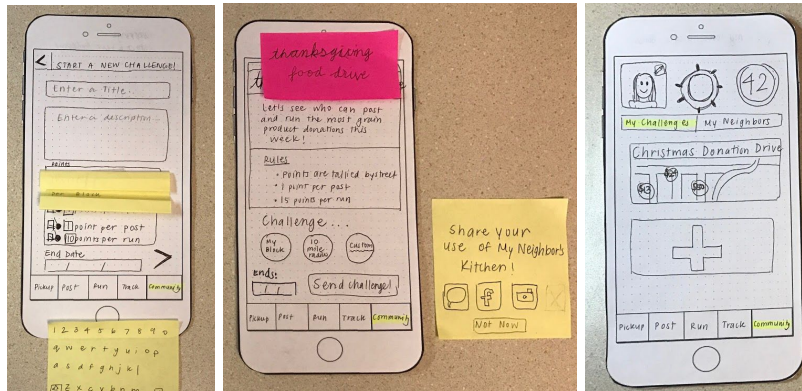 START A NEW CHALLENGE!
Enter a Title..
Enter a description...
Points
per Block
1 point per post
10 points per run
End Date
/ /
Pickup Post Run Track Community
1 2 3 4 5 6 7 8 9 0
q w e r t y u i o p
a s d f g h j k l
z x c v b n m
thanksgiving
food drive
Let's see who can post
and run the most grain
product donations this
week!
Rules
• Points are tallied by street
• 1 point per post
• 15 points per run
Challenge ...
My Block
10 mile radius
Custom
Ends:
/ /
Send challenge!
Pickup Post Run Track Community
Share your
use of My Neighbor's
Kitchen!
f
Not Now
42
My Challenges My Neighbors
Christmas Donation Drive
Pickup Post Run Track Community